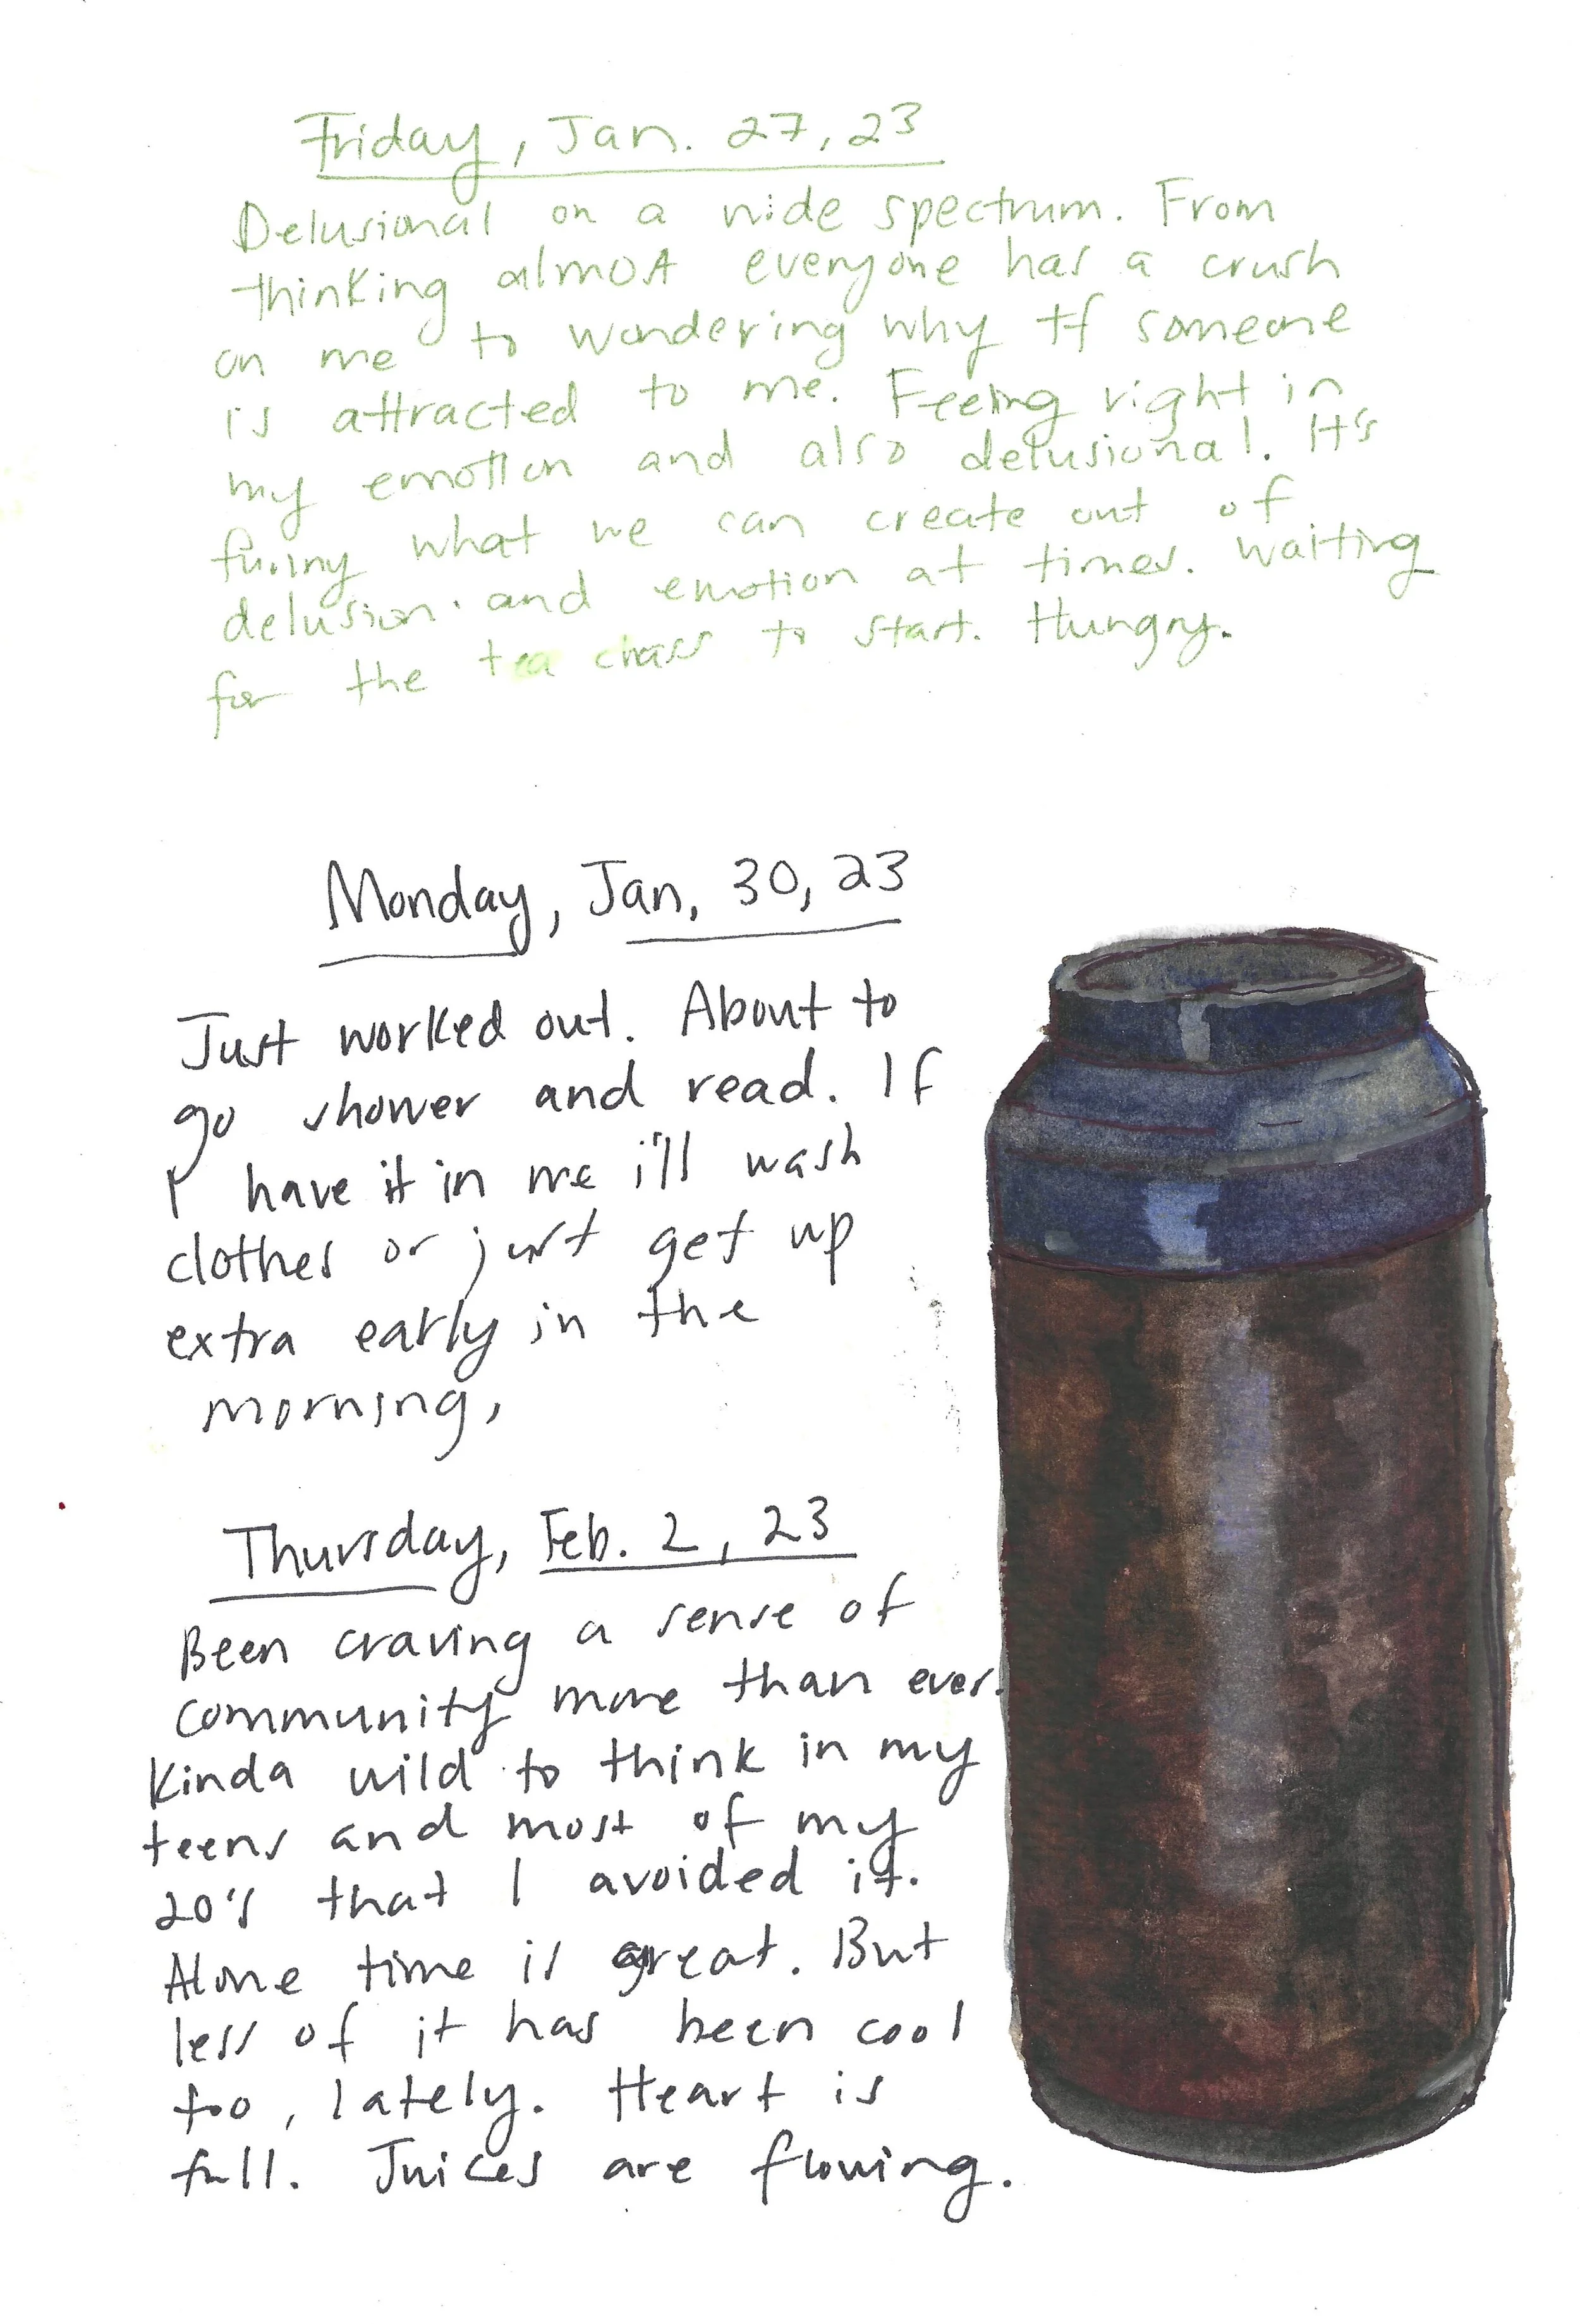 Friday, Jan. 27, 23
Delusional on a wide spectrum. From
thinking almost everyone has a crush
on me to wondering why tf someone
is attracted to me. Feeling right in
my emotion and also delusional. It's
funny what we can create out of
delusion and emotion at times. Waiting
for the tea class to start. Hungry.
Monday, Jan, 30, 23
Just worked out. About to
go shower and read. If
I have it in me i'll wash
clothes or just get up
extra early in the
morning,
Thursday, Feb. 2, 23
Been craving a sense of
community more than ever.
Kinda wild to think in my
teens and most of my
20's that I avoided it.
Alone time is great. But
less of it has been cool
too, lately. Heart is
full. Juices are flowing.